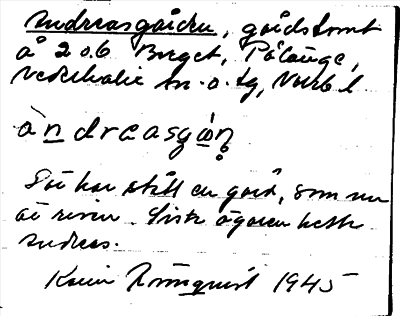 Andreasgården, gårdstomt
å 2 o. 6 Berget, Pålänge,
Nederkalix sn. o. tg, Nbtn l.
àndreasgọ̀n
Där har stått en gård, som nu
är riven. Siste ägaren hette
Andreas.
Karin Rönnquist 1945